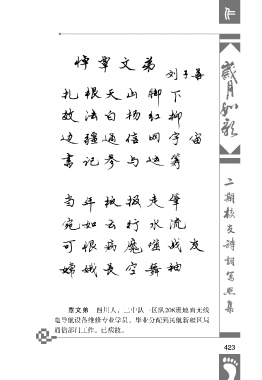 作
悼覃文弟
刘子善
扎根天山脚下
效法白杨红柳
边疆通信网宇宙
书记参与边筹
当年报报走笔
宛如云行水流
可恨病魔噬战友
嫦娥长空舞袖
覃文弟 四川人，二中队一区队208班地面无线
电导航设备维修专业学员。毕业分配到民航新疆区局
通信部门工作。已病故。
岁月如歌
二期校友诗词写照集
423